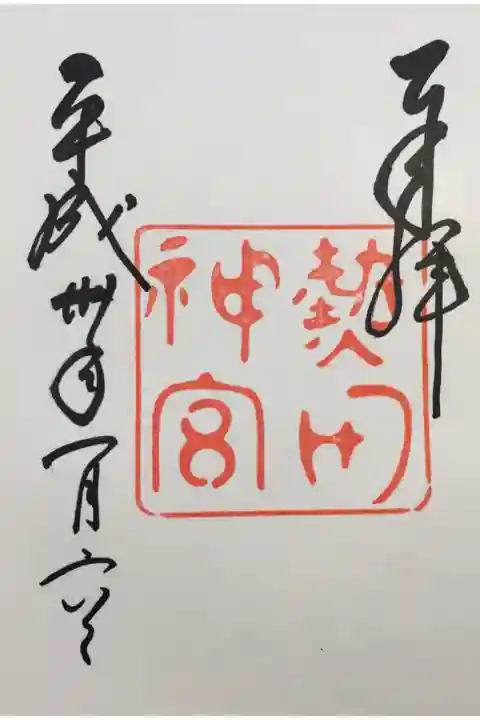 奉拝
熱田
神宮
平成卅年一月